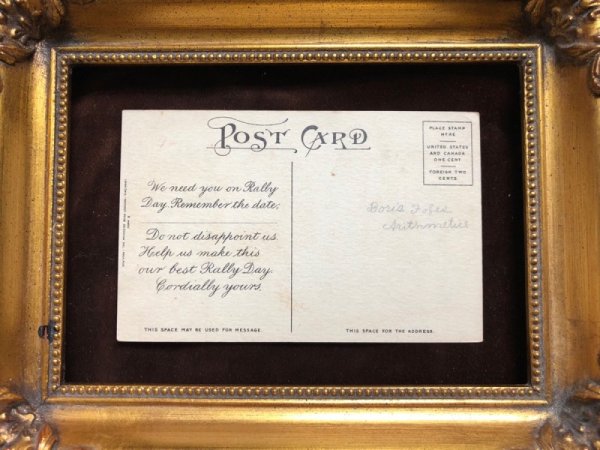 POST CARD
PLACE STAMP
HERE
UNITED STATES
AND CANADA
ONE CENT
FOREIGN TWO
CENTS
We need you on Rally
Day. Remember the date,
Do not disappoint us.
Help us make this
our best Rally Day.
Cordially yours,
Doris
Arithmetic
THIS SPACE MAY BE USED FOR MESSAGE.
THIS SPACE FOR THE ADDRESS.